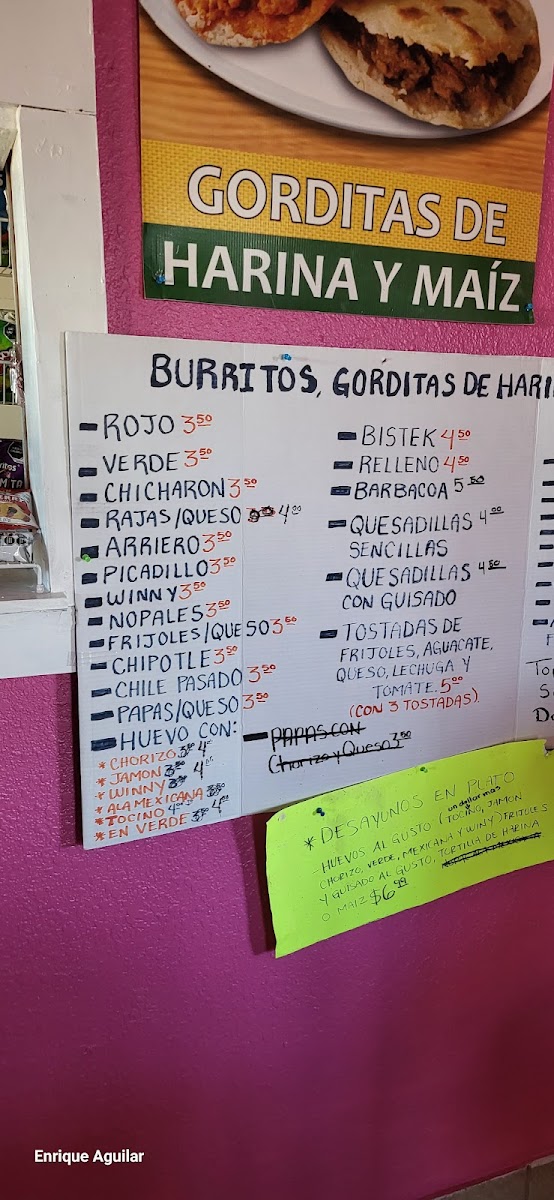 GORDITAS DE
HARINA Y MAÍZ
BURRITOS, GORDITAS DE HARI
- ROJO 3.50
- VERDE 3.50
- CHICHARON 3.50
- RAJAS/QUESO 4.00
- ARRIERO 3.50
- PICADILLO 3.50
- WINNY 3.50
- NOPALES 3.50
- FRIJOLES/QUESO 3.50
- CHIPOTLE 3.50
- CHILE PASADO 3.50
- PAPAS/QUESO 3.50
- HUEVO CON:
* CHORIZO 3.50 4.00
* JAMON 3.50 4.00
* WINNY 3.50
* A LA MEXICANA 3.50
* TOCINO 4.00
* EN VERDE 3.50 4.00
- BISTEK 4.50
- RELLENO 4.50
- BARBACOA 5.50
- QUESADILLAS 4.00
SENCILLAS
- QUESADILLAS 4.50
CON GUISADO
- TOSTADAS DE
FRIJOLES, AGUACATE,
QUESO, LECHUGA Y
TOMATE. 5.00
(CON 3 TOSTADAS).
- PAPAS CON
Chorizo y Queso 3.50
* DESAYUNOS EN PLATO
un dollar mas
- HUEVOS AL GUSTO (TOCINO, JAMON
CHORIZO, VERDE, MEXICANA Y WINY) FRIJOLES
Y GUISADO AL GUSTO, TORTILLA DE HARINA
O MAIZ $6.99
Enrique Aguilar